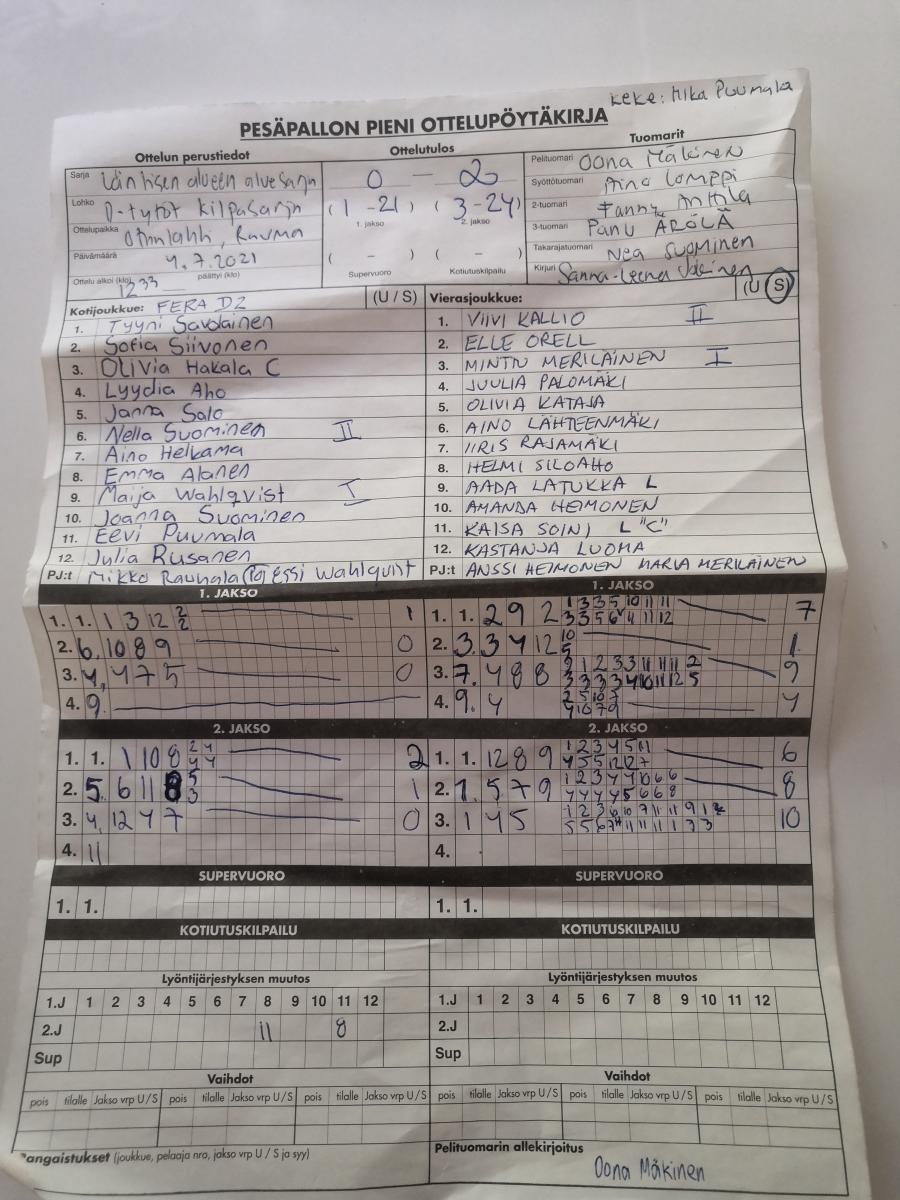 keke: Mika Puumala
PESÄPALLON PIENI OTTELUPÖYTÄKIRJA
Ottelun perustiedot
Sarja Läntisen alueen aluesarja
Lohko D-tytöt kilpasarja
Ottelupaikka Otanlahti, Rauma
Päivämäärä 4.7.2021
Ottelu alkoi (klo) 1233 päättyi (klo)
Ottelutulos
0 — 2
(1 -21) (3 -24)
1. jakso 2. jakso
( - ) ( - )
Supervuoro Kotiutuskilpailu
Tuomarit
Pelituomari Oona Mäkinen
Syöttötuomari Aino Lomppi
2-tuomari Fanny Anttila
3-tuomari Panu ÄRÖLÄ
Takarajatuomari Nea SUOMINEN
Kirjuri Sanna-Leena
Kotijoukkue: FERA D2 (U / S)
1. Tyyni Savolainen
2. Sofia Siivonen
3. Olivia Hakala C
4. Lyydia Aho
5. Janna Salo
6. Nella Suominen II
7. Aino Helkama
8. Emma Alanen
9. Maija Wahlqvist I
10. Joanna Suominen
11. Eevi Puumala
12. Julia Rusanen
PJ:t Mikko Rauhala Essi Wahlqvist
Vierasjoukkue: (U S)
1. VIIVI KALLIO II
2. ELLE ORELL
3. MINTTU MERILÄINEN I
4. JUULIA PALOMÄKI
5. OLIVIA KATAJA
6. AINO LÄHTEENMÄKI
7. IIRIS RAJAMÄKI
8. HELMI SILOAHO
9. AADA LATUKKA L
10. AMANDA HEIMONEN
11. KAISA SOINI L "C"
12. KASTANJA LUOMA
PJ:t ANSSI HEIMONEN MARIA MERILÄINEN
1. JAKSO
1. 1. 1 3 12 2 2 1
2. 6. 10 8 9 0
3. 4. 4 7 5 0
4. 9.
1. JAKSO
1. 1. 2 9 2 1 3 3 5 10 11 11 7
2. 3. 3 4 12 10 5 1
3. 7. 4 8 8 9
4. 9. 4 4
2. JAKSO
1. 1. 1 10 8 2 4 4 4 2
2. 5. 6 11 8 5 3 1
3. 4. 12 4 7 0
4. 11
2. JAKSO
1. 1. 12 8 9 6
2. 1. 5 7 9 8
3. 1 4 5 10
4.
SUPERVUORO
1. 1.
SUPERVUORO
1. 1.
KOTIUTUSKILPAILU
KOTIUTUSKILPAILU
Lyöntijärjestyksen muutos
1.J 1 2 3 4 5 6 7 8 9 10 11 12
2.J 11 8
Sup
Lyöntijärjestyksen muutos
1.J 1 2 3 4 5 6 7 8 9 10 11 12
2.J
Sup
Vaihdot
pois tilalle Jakso vrp U / S pois tilalle Jakso vrp U / S pois tilalle Jakso vrp U / S
Vaihdot
pois tilalle Jakso vrp U / S pois tilalle Jakso vrp U / S pois tilalle Jakso vrp U / S
Rangaistukset (joukkue, pelaaja nro, jakso vrp U / S ja syy)
Pelituomarin allekirjoitus
Oona Mäkinen